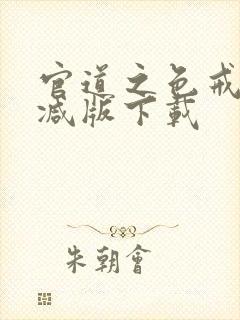 官道之色戒
减版下載
朱朝會